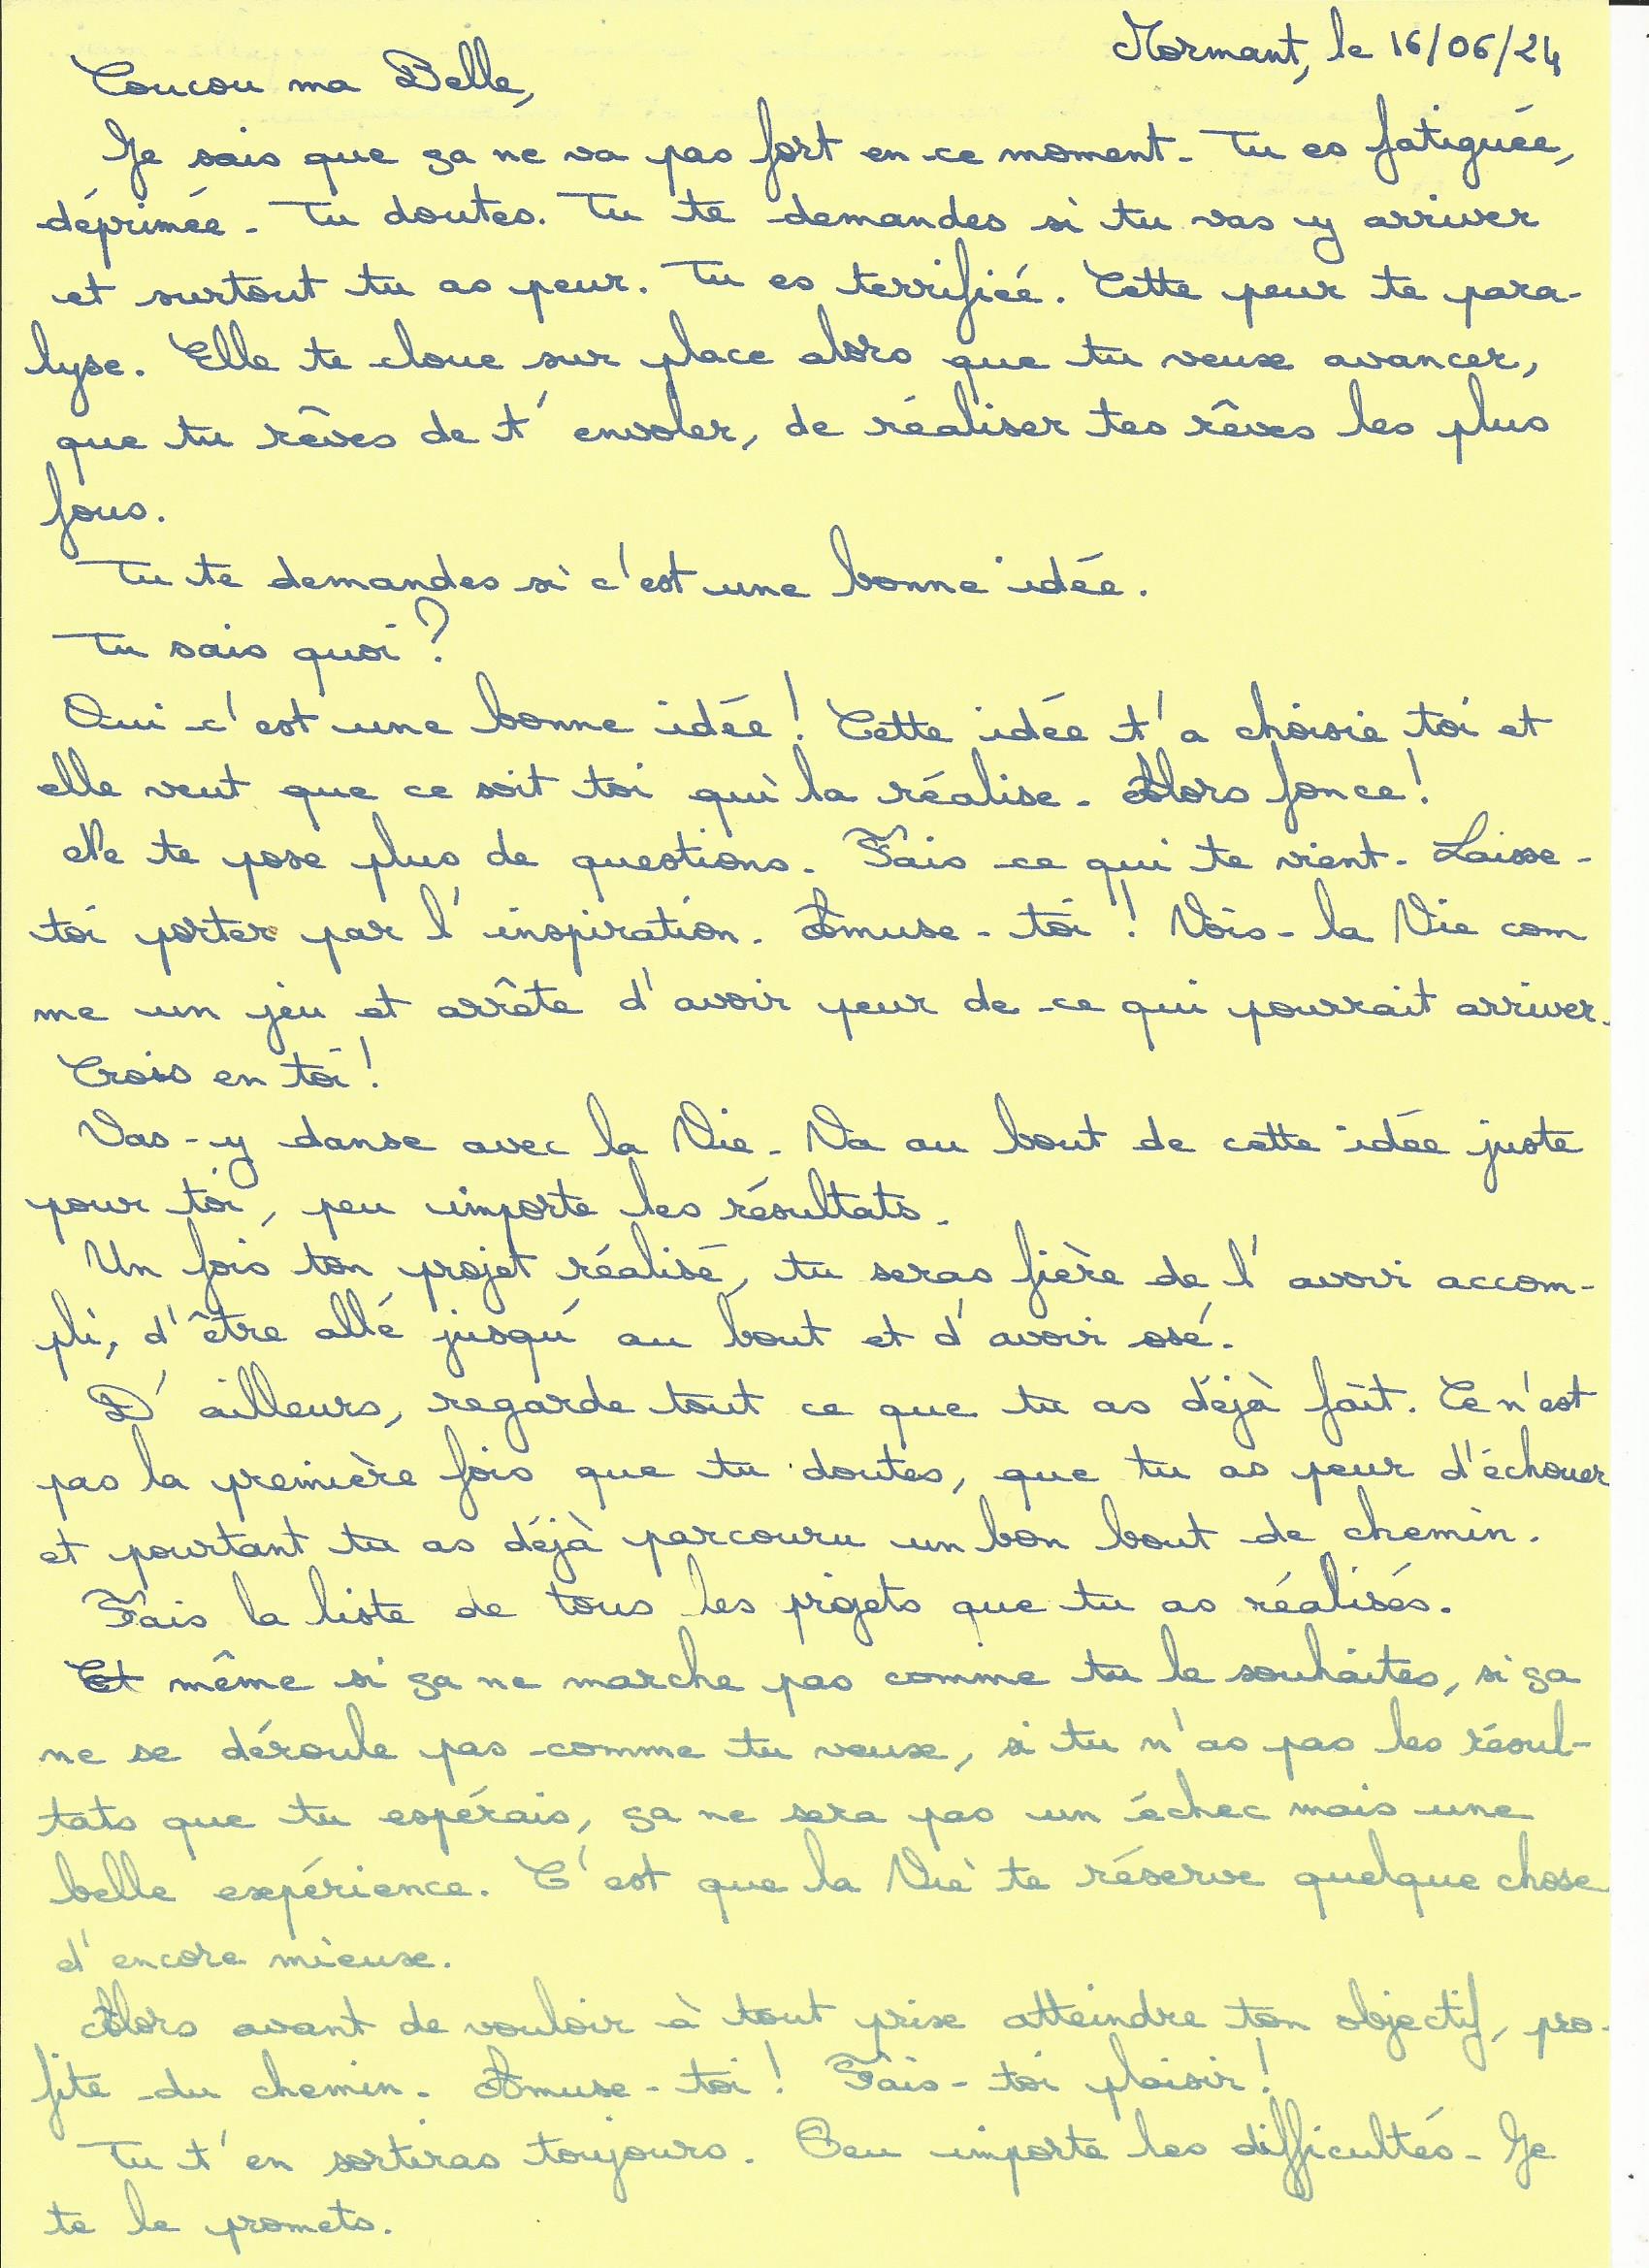 Mormant, le 16/06/24
Coucou ma Belle,
Je sais que ça ne va pas fort en ce moment. Tu es fatiguée,
déprimée. Tu doutes. Tu te demandes si tu vas y arriver
et surtout tu as peur. Tu es terrifiée. Cette peur te para-
lyse. Elle te cloue sur place alors que tu veux avancer,
que tu rêves de t'envoler, de réaliser tes rêves les plus
fous.
Tu te demandes si c'est une bonne idée.
Tu sais quoi ?
Oui c'est une bonne idée ! Cette idée t'a choisie toi et
elle veut que ce soit toi qui la réalise. Alors fonce !
Ne te pose plus de questions. Fais ce qui te vient. Laisse-
toi porter par l'inspiration. Amuse-toi ! Vois-la Vie com
me un jeu et arrête d'avoir peur de ce qui pourrait arriver.
Crois en toi !
Vas-y danse avec la Vie. Va au bout de cette idée juste
pour toi, peu importe les résultats.
Un fois ton projet réalisé, tu seras fière de l'avoir accom-
pli, d'être allé jusqu'au bout et d'avoir osé.
D'ailleurs, regarde tout ce que tu as déjà fait. Ce n'est
pas la première fois que tu doutes, que tu as peur d'échouer
et pourtant tu as déjà parcouru un bon bout de chemin.
Fais la liste de tous les projets que tu as réalisés.
Et même si ça ne marche pas comme tu le souhaites, si ça
ne se déroule pas comme tu veux, si tu n'as pas les résul-
tats que tu espérais, ça ne sera pas un échec mais une
belle expérience. C'est que la Vie te réserve quelque chose
d'encore mieux.
Alors avant de vouloir à tout prix atteindre ton objectif, pro-
fite du chemin. Amuse-toi ! Fais-toi plaisir !
Tu t'en sortiras toujours. Peu importe les difficultés. Je
te le promets.